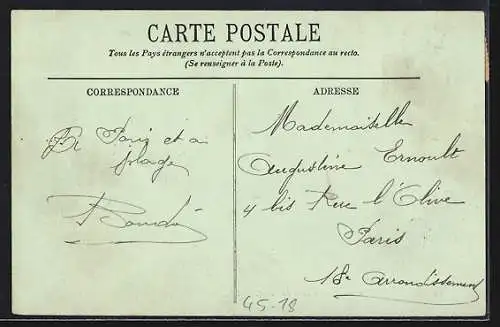 CARTE POSTALE
Tous les Pays étrangers n'acceptent pas la Correspondance au recto.
(Se renseigner à la Poste).
CORRESPONDANCE
ADRESSE
Paris et
plage
Mademoiselle
Augustine Ernoult
4 bis Rue l'Olive
Paris
18e arrondissement
45-18